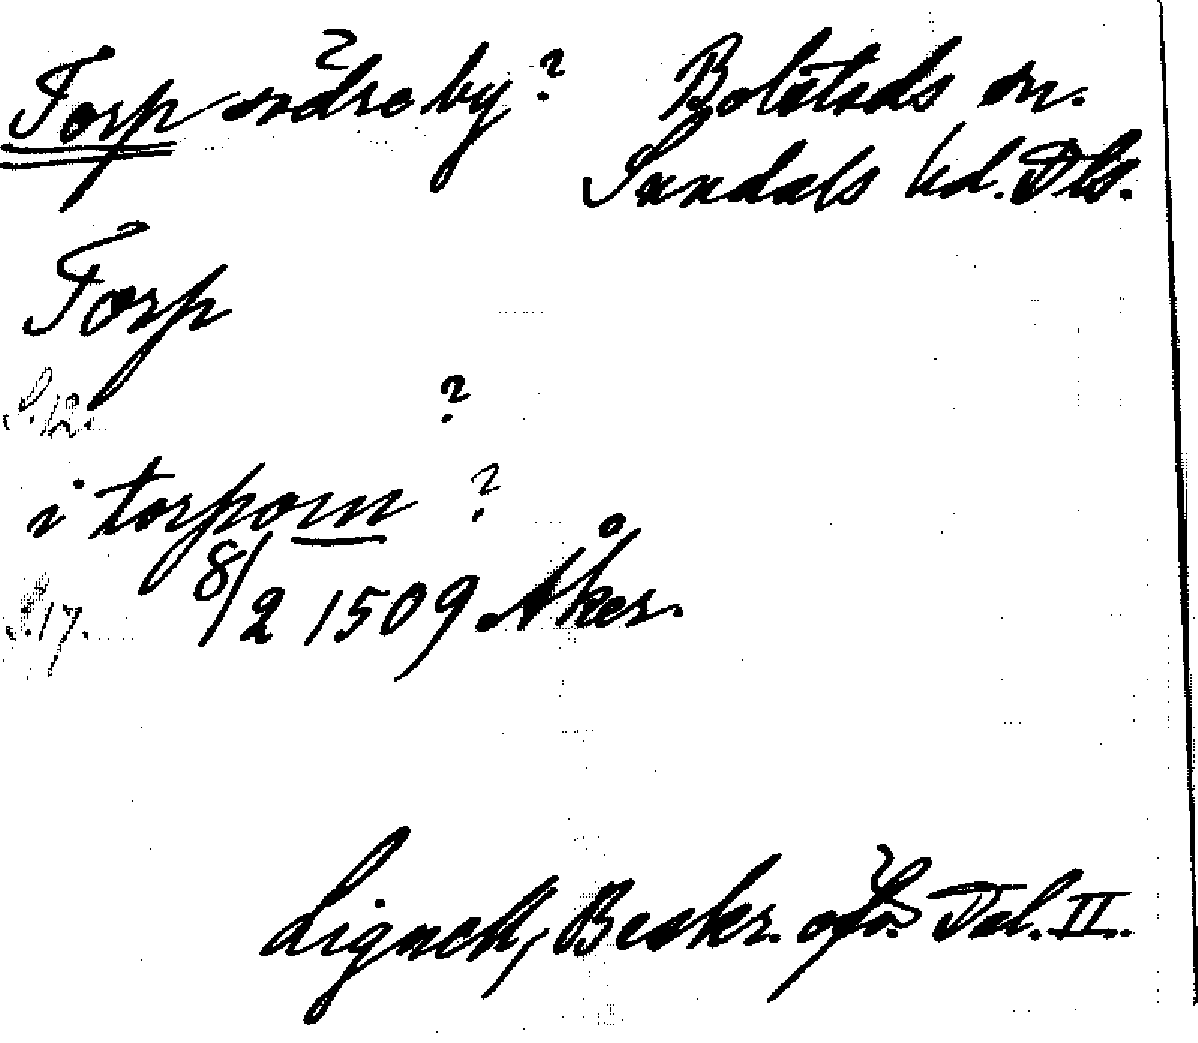 Torp södre by? Bolstads sn.
Sundals hd. Dls.
Torp
S. 12. ?
i torpom ?
S. 17. 8/2 1509 Åker.
Lignell, Beskr. öfv. Dal. II.